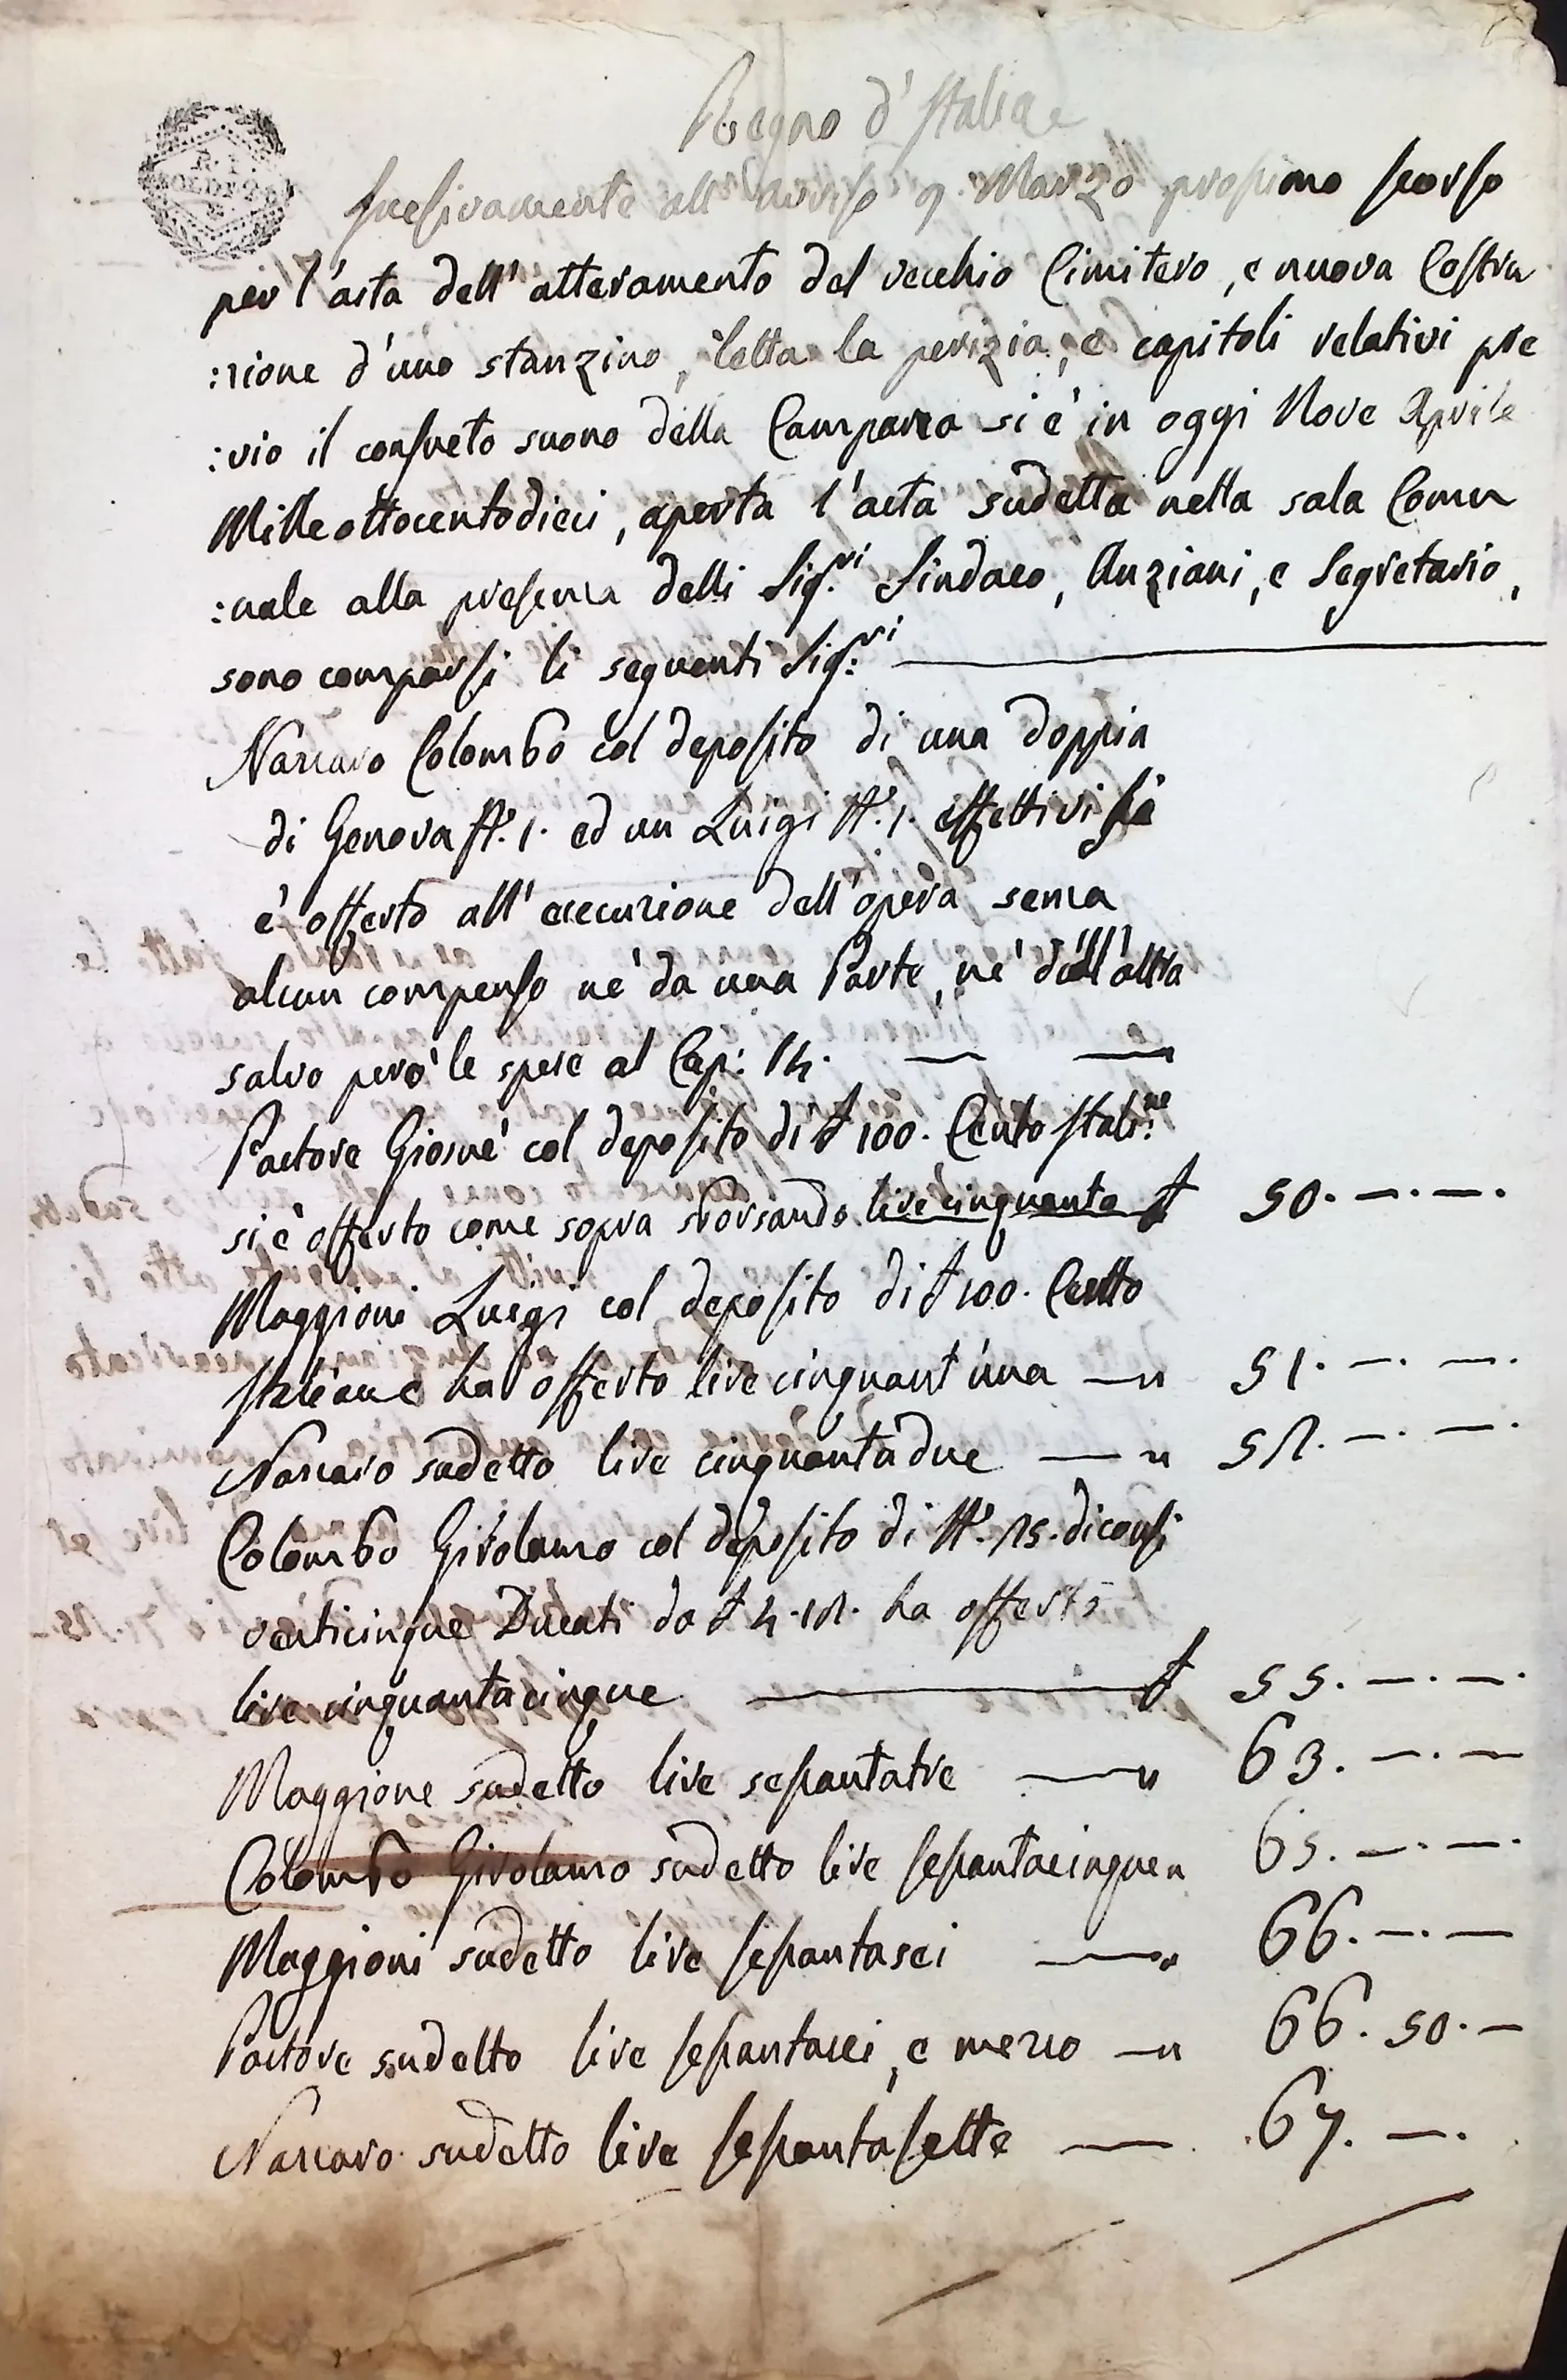 Regno d'Italia
Sucesivamente all'avviso 9. Marzo prossimo scorso
per l'asta dell'atteramento del vecchio Cimitero, e nuova Costru
:zione d'uno stanzino, letta la perizia, e capitoli relativi pre
:vio il consueto suono della Campana si è in oggi Nove Aprile
Mille ottocentodieci, aperta l'asta sudetta nella sala Comu
:nale alla presenza delli Sig.ri Sindaco, Anziani, e Segretario,
sono comparsi li seguenti Sig:ri
Nazaro Colombo col deposito di una doppia
di Genova N.° 1. ed un Luigi N.° 1. effettivi si
è offerto all'esecuzione dell'opera senza
alcun compenso nè da una Parte, nè dall'altra
salvo però le spese al Cap: 14.
Pastore Giosuè col deposito di £ 100. Cento Itali:ne
si è offerto come sopra sborsando lire cinquanta £ 50. —. —.
Maggioni Luigi col deposito di £ 100. Cento
Italiane ha offerto lire cinquant'una — " 51. —. —.
Nazaro sudetto lire cinquantadue — " 52. —. —.
Colombo Girolamo col deposito di N.° 25. diconsi
venticinque Ducati da £ 4.12. ha offerto
lire cinquantacinque — £ 55. —. —.
Maggione sudetto lire sessantatre — " 63. —. —
Colombo Girolamo sudetto lire sessantacinque " 65. —. —.
Maggioni sudetto lire sessantasei — " 66. —. —
Pastore sudetto lire sessantasei, e mezzo — " 66. 50. —
Nazaro sudetto lire sessantasette — 67. —.